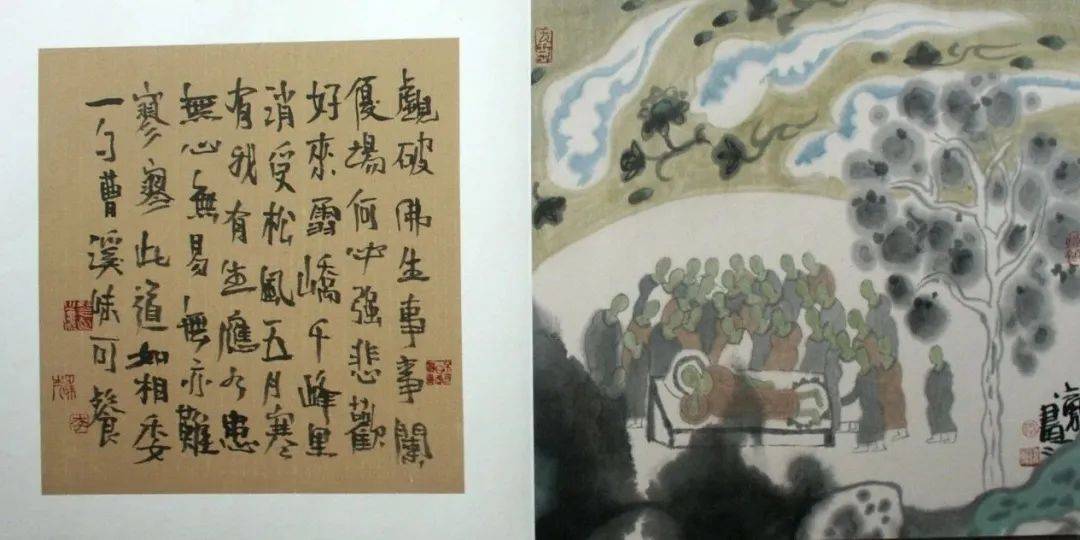 覷破佛生事事闌
優場何必強悲歡
好來雪嶠千峰里
消受松風五月寒
有我有生應有患
無心無易無亦難
寥寥此道如相委
一勺曹溪味可餐